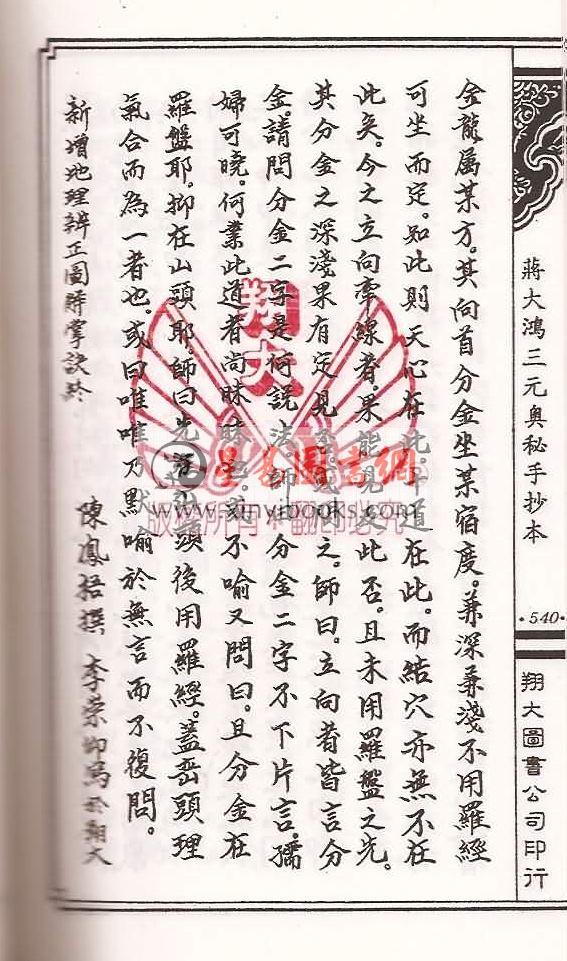 蔣大鴻三元奧秘手抄本
·540·
翔大圖書公司印行
金龍属某方。其向首分金坐某宿度。兼深兼淺不用羅經
可坐而定。知此則天心在此。十道在此。而結穴亦無不在
此矣。今之立向牽線者。果能見及此否。且未用羅盤之先。
其分金之深淺果有定見
之。師曰。立向者皆言分
金。請問分金二字是何說法。師曰分金二字不下片言。孺
婦可曉。何業此道者尚昧
不喻又問曰。且分金在
羅盤耶。抑在山頭耶。師曰先
頭後用羅經。蓋巒頭理
氣合而為一者也。或曰唯唯乃默喻於無言而不復問。
新增地理辨正圖訣掌訣終
陳鳳梧撰 李崇仰寫於翔大
翔大
星易圖書網
www.xinyibooks.com
版權所有·翻印必究